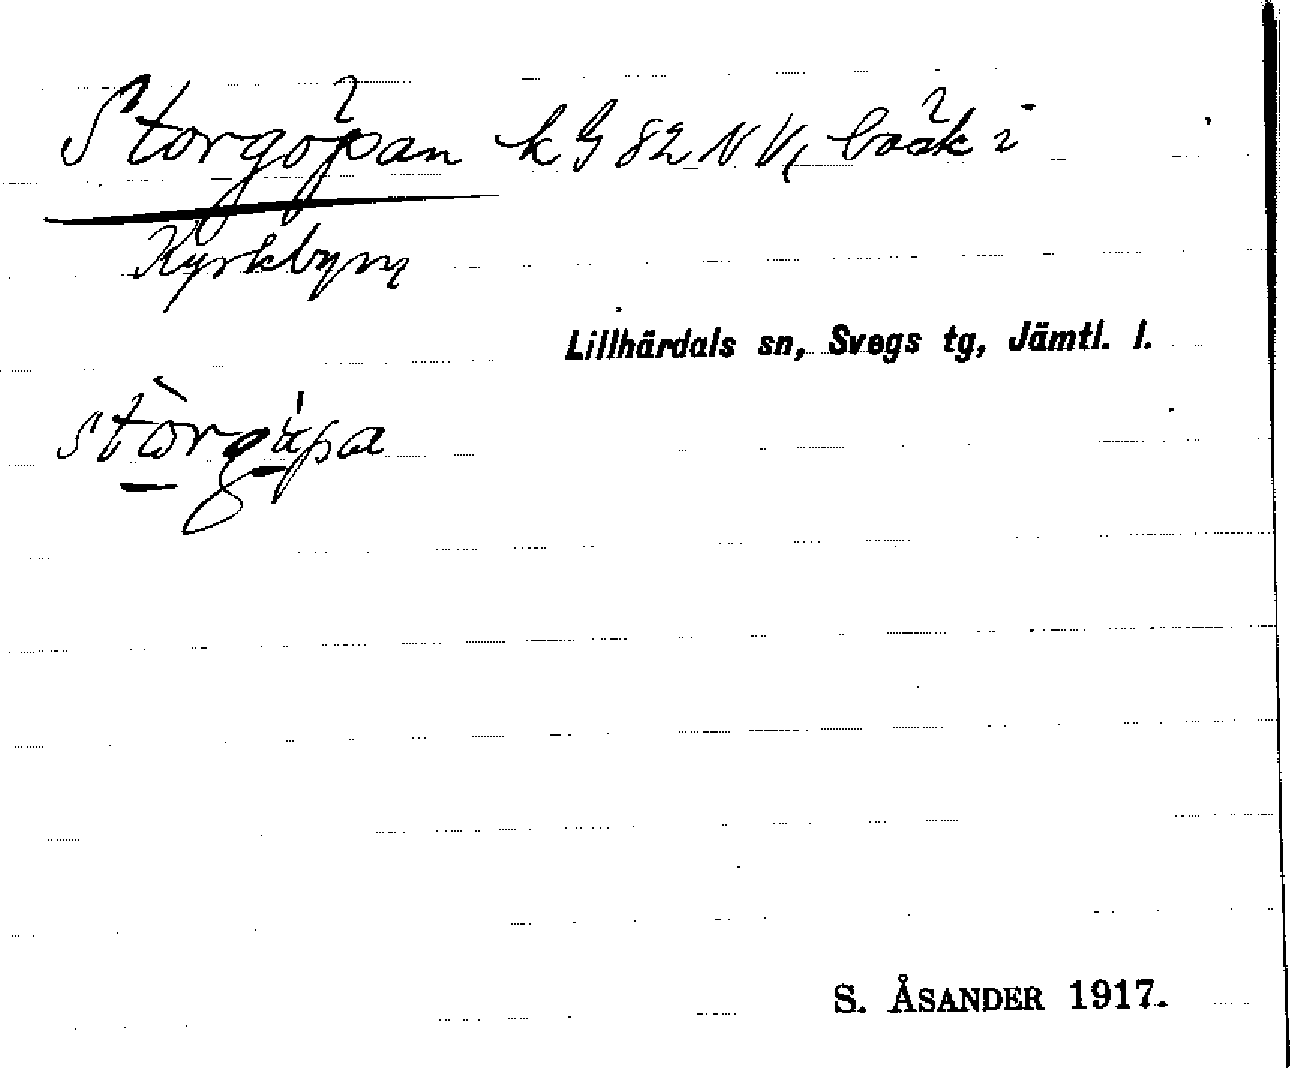 Storgöpan k G 82 NV, bäck i
Kyrkbyn
Lillhärdals sn, Svegs tg, Jämtl. l.
stòrgápa
S. ÅSANDER 1917.